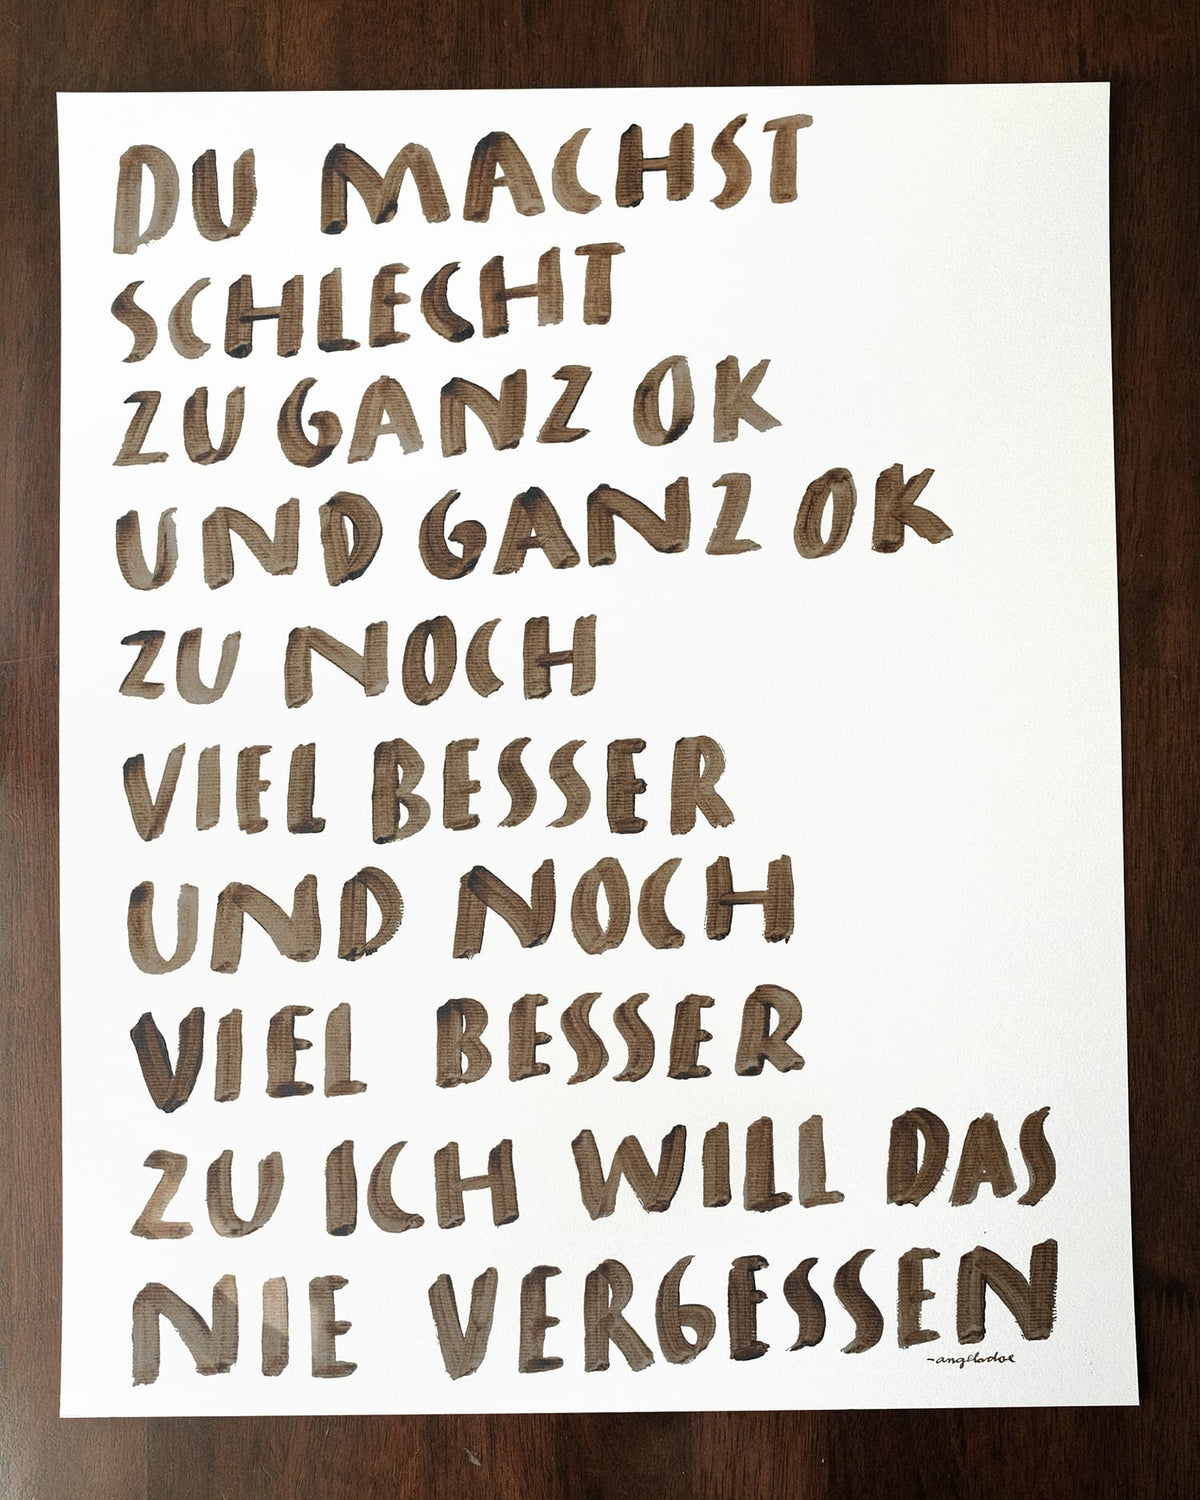 DU MACHST
SCHLECHT
ZU GANZ OK
UND GANZ OK
ZU NOCH
VIEL BESSER
UND NOCH
VIEL BESSER
ZU ICH WILL DAS
NIE VERGESSEN
-angeladoe